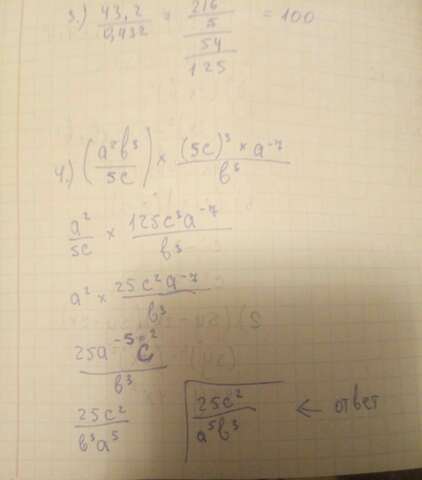 3.) 43,2 / 0,432 = 216/5 / 54/125 = 100
4.) (a²b³ / 5c) × (5c)³ × a⁻⁷ / b³
a² / 5c × 125c³a⁻⁷ / b³
a² × 25c²a⁻⁷ / b³
25a⁻⁵c² / b³
25c² / b³a⁵
25c² / a⁵b³ ← ответ